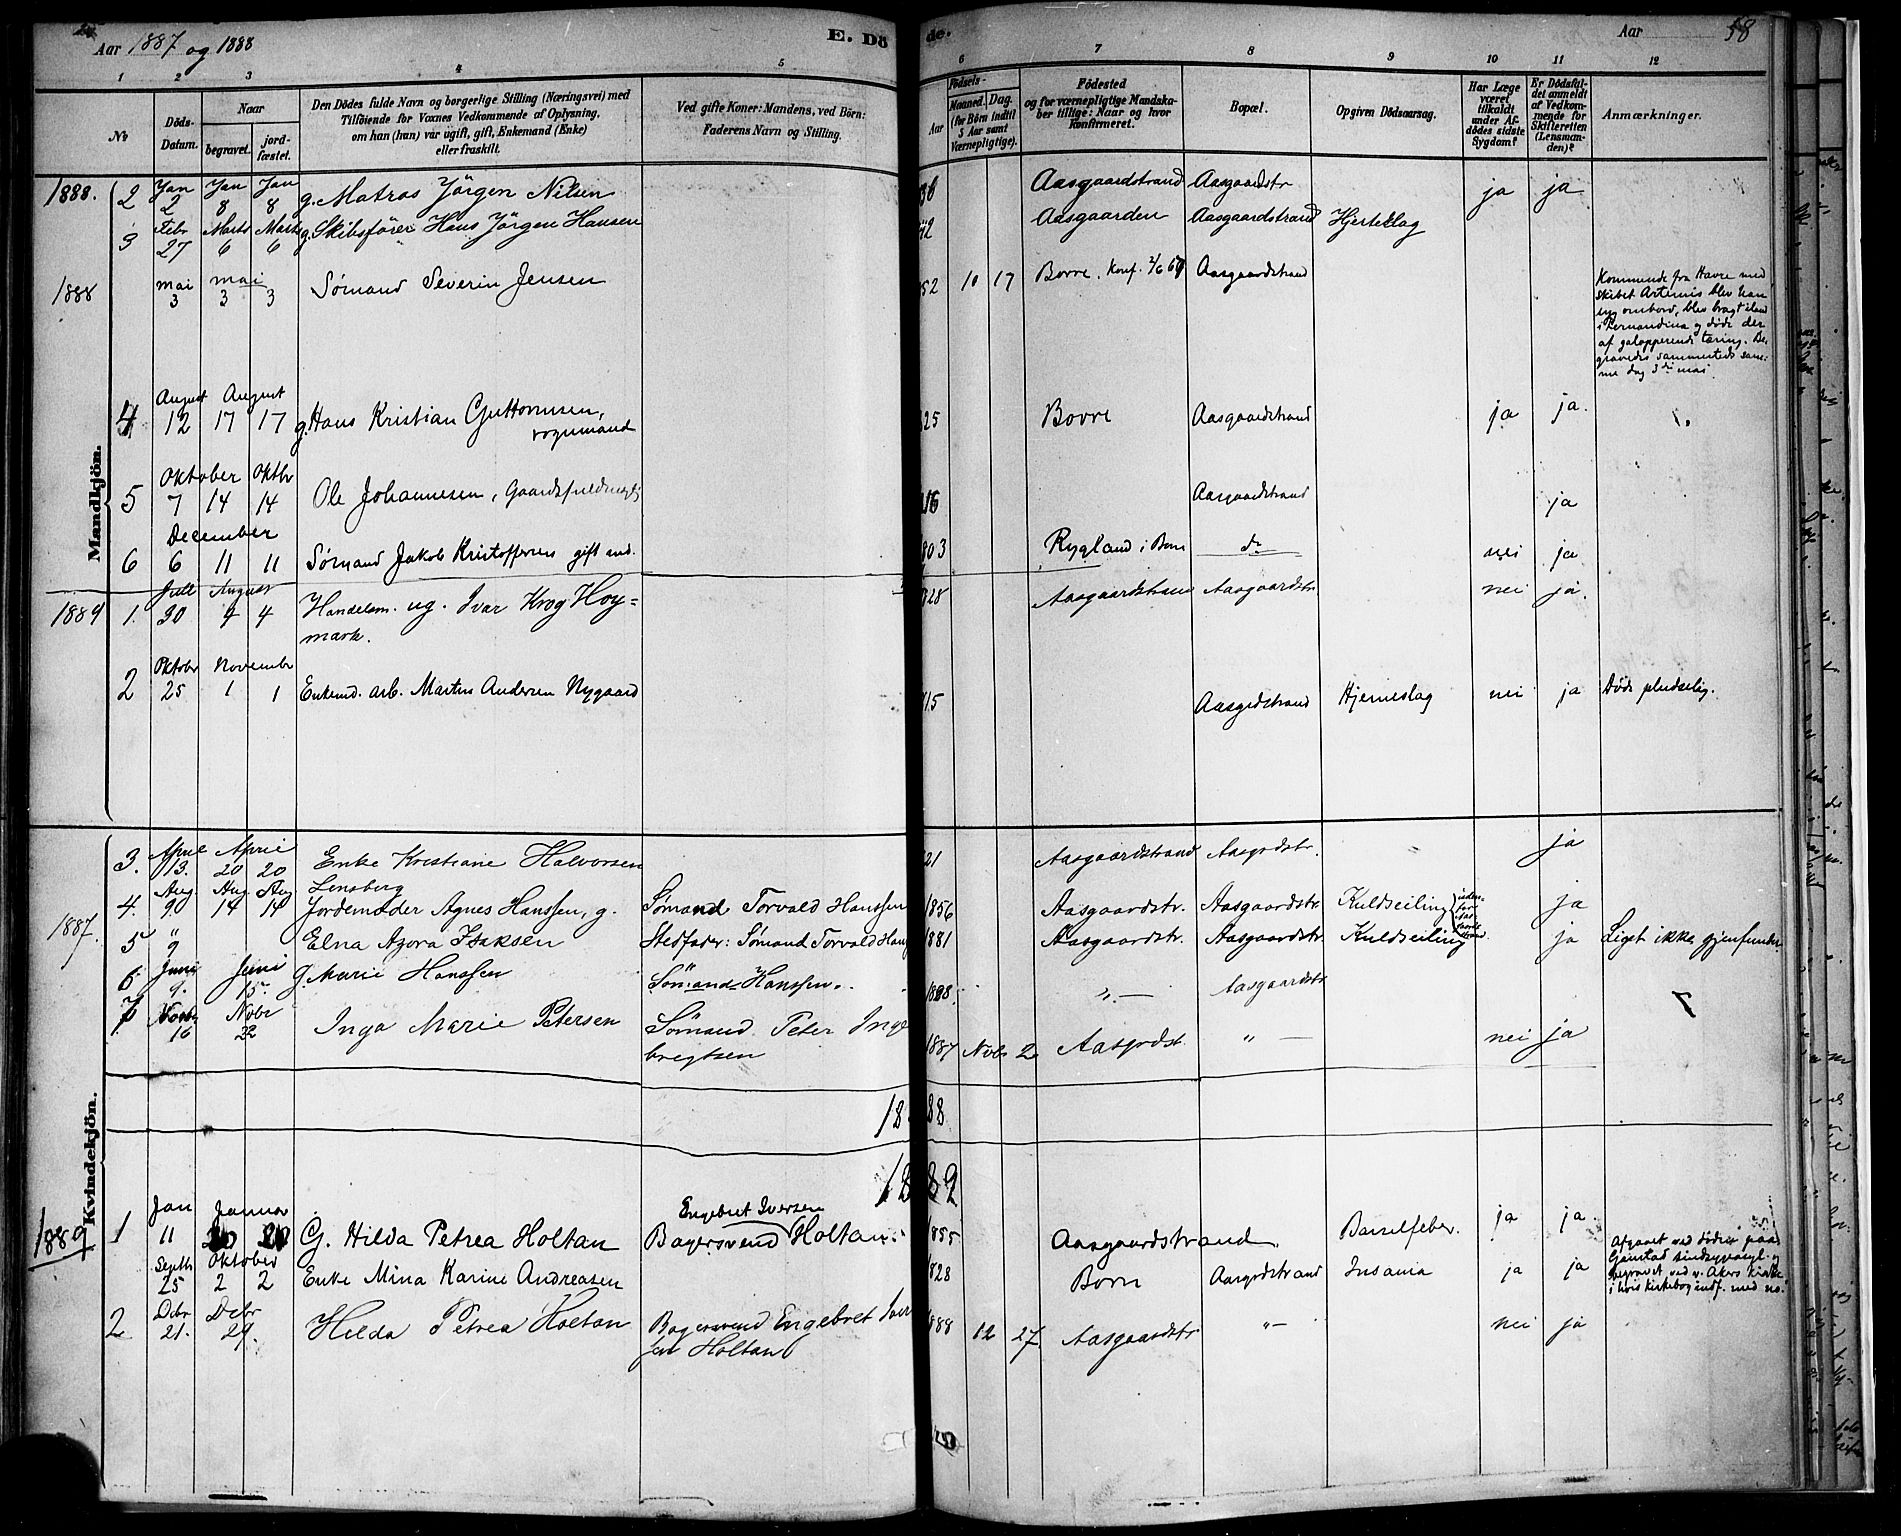 Aar 1887 og 1888
E. Döde.
Aar 58
1 2 3 4 5 6 7 8 9 10 11 12
No
Döds-Datum.
Naar
begravet.
jord-fæstet.
Den Dödes fulde Navn og borgerlige Stilling (Næringsvei) med
Tilföiende for Voxnes Vedkommende af Oplysning,
om han (hun) var ugift, gift, Enkemand (Enke)
eller fraskilt.
Ved gifte Koner: Mandens, ved Börn:
Faderens Navn og Stilling.
Födsels-
Aar
Maaned. Dag.
(for Børn indtil
5 Aar samt
Værnepligtige).
Födested
og for værnepligtige Mandska-
ber tillige: Naar og hvor
konfirmeret.
Bopæl.
Opgiven Dødsaarsag.
Har Læge
været
tilkaldt
under Af-
dödes sidste
Sygdom?
Er Dödsfal-
det anmeldt
af Vedkom-
mende for
Skifteretten
(Lensman-
den)?
Anmærkninger.
Mandkjön.
1888. 2 Jan 2 Jan 8 Jan 8 g. Matros Jörgen Nilsen Aasgaardstrand Aasgaardstr ja ja
3 Febr 27 Marts 6 Marts 6 g. Skibsförer Hans Jörgen Hansen 42 Aasgaarden Aasgaardstrand Hjerteslag
1888 mai 3 mai 3 3 Sømand Severin Jensen 52 10 17 Borre. Konf. Aasgaardstrand
Kommende fra Havre med
skibet Artemis blev han
syg ombord, blev bragt iland
i Fernandina og døde der
af galopperende tæring. Be-
gravedes sammesteds sam-
me dag 3die mai.
4 August 12 August 17 17 g. Hans Kristian Guttormsen, 25 Borre Aasgaardstrand ja ja.
vognmand
5 Oktober 7 14 Oktbr 14 Ole Johannesen, Gaardsfuldmegtig Aasgaardstrand ja
6 December 6 11 11 Sømand Jakob Kristoffersen gift 803 Rygland i Borre do nei ja
1889 1. Juli 30 August 4 4 Handelsm. ug. Ivar Krog Hoy= 828 Aasgaardstrand Aasgaardstr. nei ja.
mark.
2 Oktober 25 November 1 1 Enkemd. arb. Martin Andersen Nygaard 15 Aasgrdstrand Hjerneslag nei ja Døde pludselig.
Kvindekjön.
3. April 13. April 20 20 Enke Kristiane Halvorsen 21 Aasgaardstrand Aasgrdstr. ja
Lensberg
1887. 4. Aug. 9 Aug. 14 Aug. 14 Jordemoder Agnes Hanssen, g. Sømand Torvald Hanssen 1856 Aasgaardstr. Aasgaardstr. Kuldseiling ja
5 " 9 Elna Azora Isaksen Stedfader: Sømand Torvald Hans 1881 Aasgaardstr. Aasgaardstr. Kuldseiling ja Liget ikke gjenfundet
6 Juni 9. Juni 15 g. Marie Hanssen Sömand Hanssen. "— Aasgaardstr
7 Novbr 16 Nobr 22 Inga Marie Petersen Sömand Peter Inge 1887 Nobr 2 Aasgrdst. " — nei ja
bregtsen
1888
1889
1889 1 Jan 11 Januar 20 20 G. Hilda Petrea Holtan Engebret Iversen
Bagersvend Holtan. 1855 Aasgaardstrand Barselfeber. ja ja
Septb 25 Oktober 2 2 Enke Mina Karine Andreasen 1828 Borre Aasgrdstrand Insania ja ja
Afgaaet ved døden paa
Gaustad sindssygeasyl. og
begravet ved v. Akers kirke
i hvis kirkebog indf. med no.
2 Dcbr 21. Dcbr 29. Hilda Petrea Holtan Bagersvend Engebret Iver 888 12 27. Aasgaardstr "— nei ja
sen Holtan